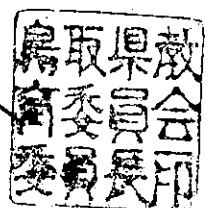 鳥取県教
育委員会
委員長印